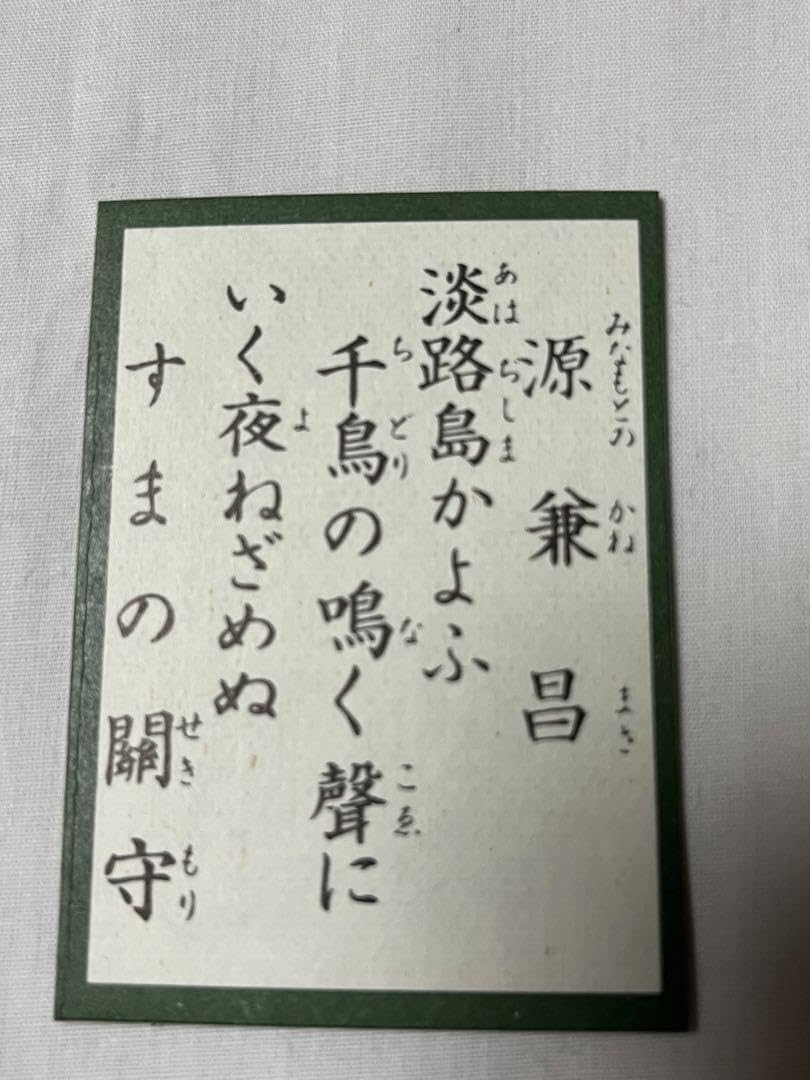 源兼昌
みなもとのかねまさ
淡路島かよふ
あはぢしま
千鳥の鳴く聲に
ちどりなこゑ
いく夜ねざめぬ
よ
すまの關守
せきもり